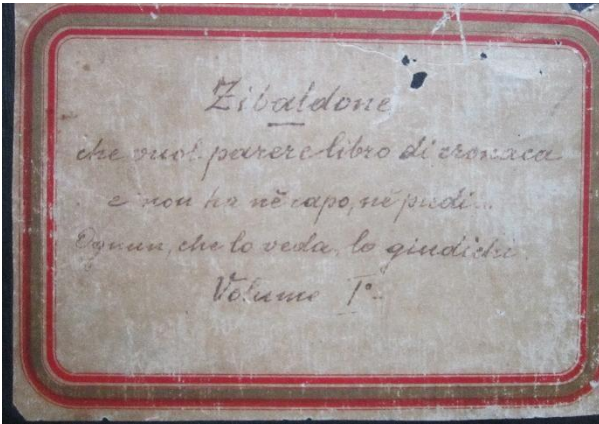 Zibaldone
che vuol parere libro di cronaca
e non ha nè capo, nè piedi...
Ognun, che lo veda, lo giudichi.
Volume I°.